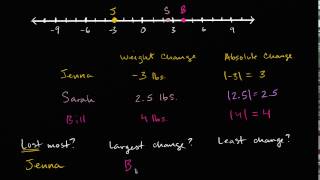 J S B
-9 -6 -3 0 3 6 9
Weight Change Absolute Change
Jenna -3 lbs. |-3| = 3
Sarah 2.5 lbs. |2.5| = 2.5
Bill 4 lbs. |4| = 4
Lost most? Largest change? Least change?
Jenna B